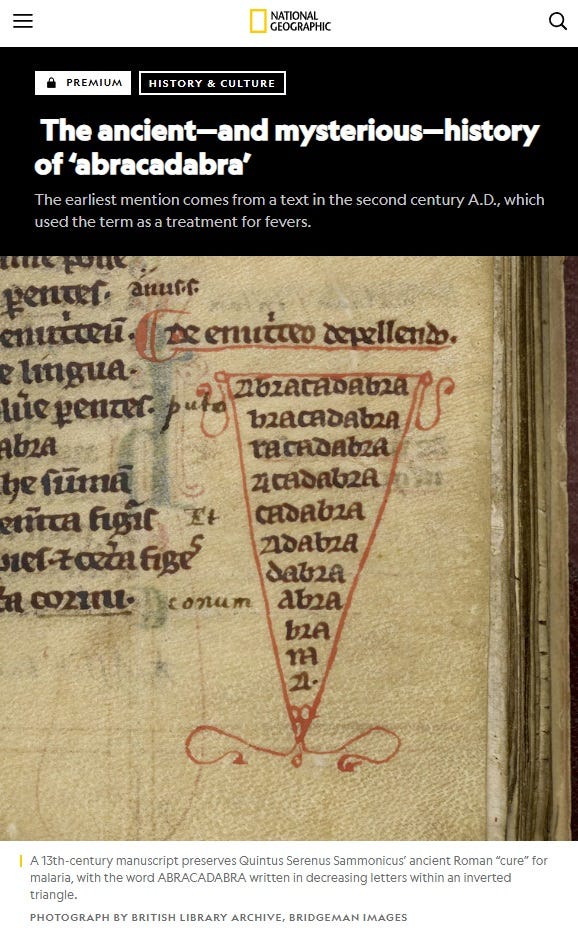 NATIONAL
GEOGRAPHIC
PREMIUM
HISTORY & CULTURE
The ancient—and mysterious—history
of ‘abracadabra’
The earliest mention comes from a text in the second century A.D., which
used the term as a treatment for fevers.
e lingua.
puto
abra
Et
conum
depellendo.
abracadabra
bracadabra
racadabra
acadabra
cadabra
adabra
dabra
abra
bra
ra
a.
A 13th-century manuscript preserves Quintus Serenus Sammonicus’ ancient Roman “cure” for
malaria, with the word ABRACADABRA written in decreasing letters within an inverted
triangle.
PHOTOGRAPH BY BRITISH LIBRARY ARCHIVE, BRIDGEMAN IMAGES